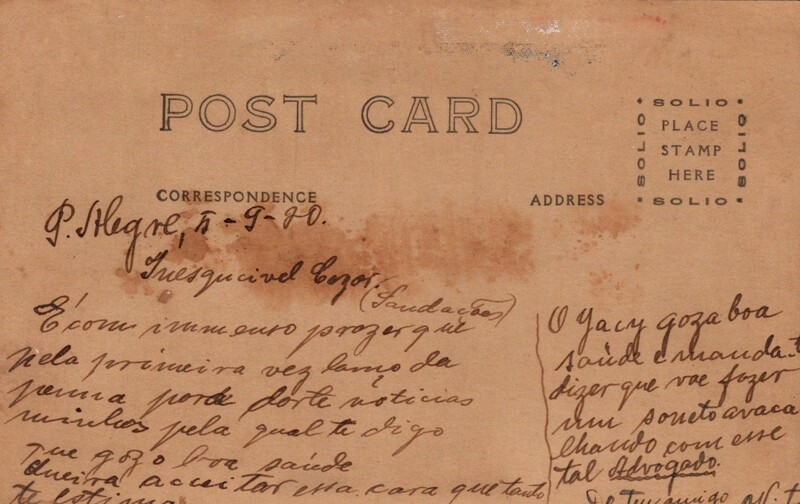 POST CARD
SOLIO
SOLIO
PLACE
STAMP
HERE
SOLIO
SOLIO
CORRESPONDENCE
ADDRESS
P. Alegre, 5-9-20.
Inesqucivel Cezar.
(Saudações)
É com immenso prazer que
pela primeira vez lanço da
penna para darte nóticias
minhas pela qual te digo
que gozo boa saúde
Queira acceitar essa cara que tanto
te estima
O Yacy goza boa
saúde e manda-t
dizer que vae fazer
um soneto avaca
lhando com esse
tal Advogado.